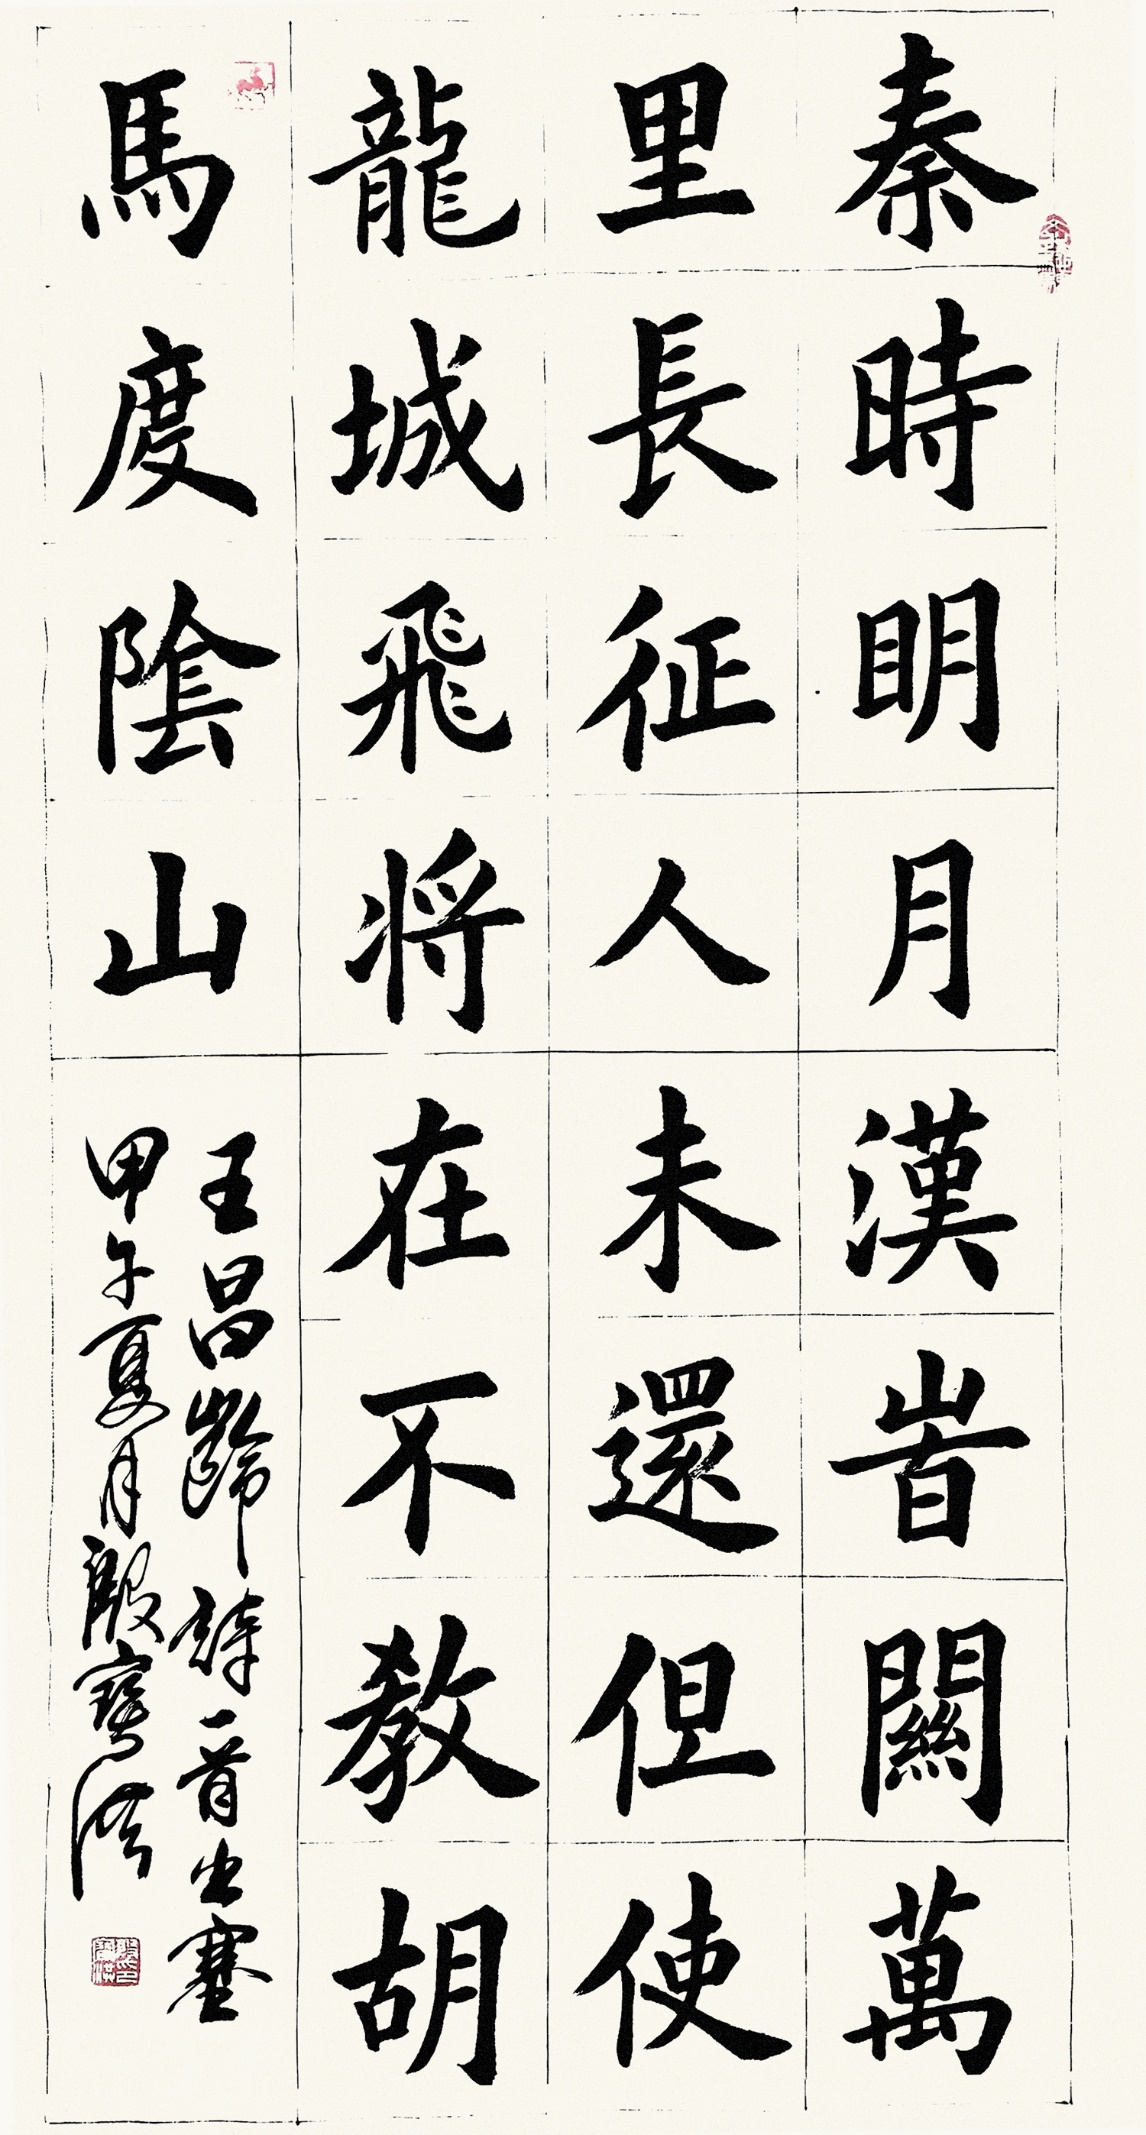 秦時明月漢旹關萬
里長征人未還但使
龍城飛將在不教胡
馬度陰山
王昌齡詩一首出塞
甲午夏月殷寶洪